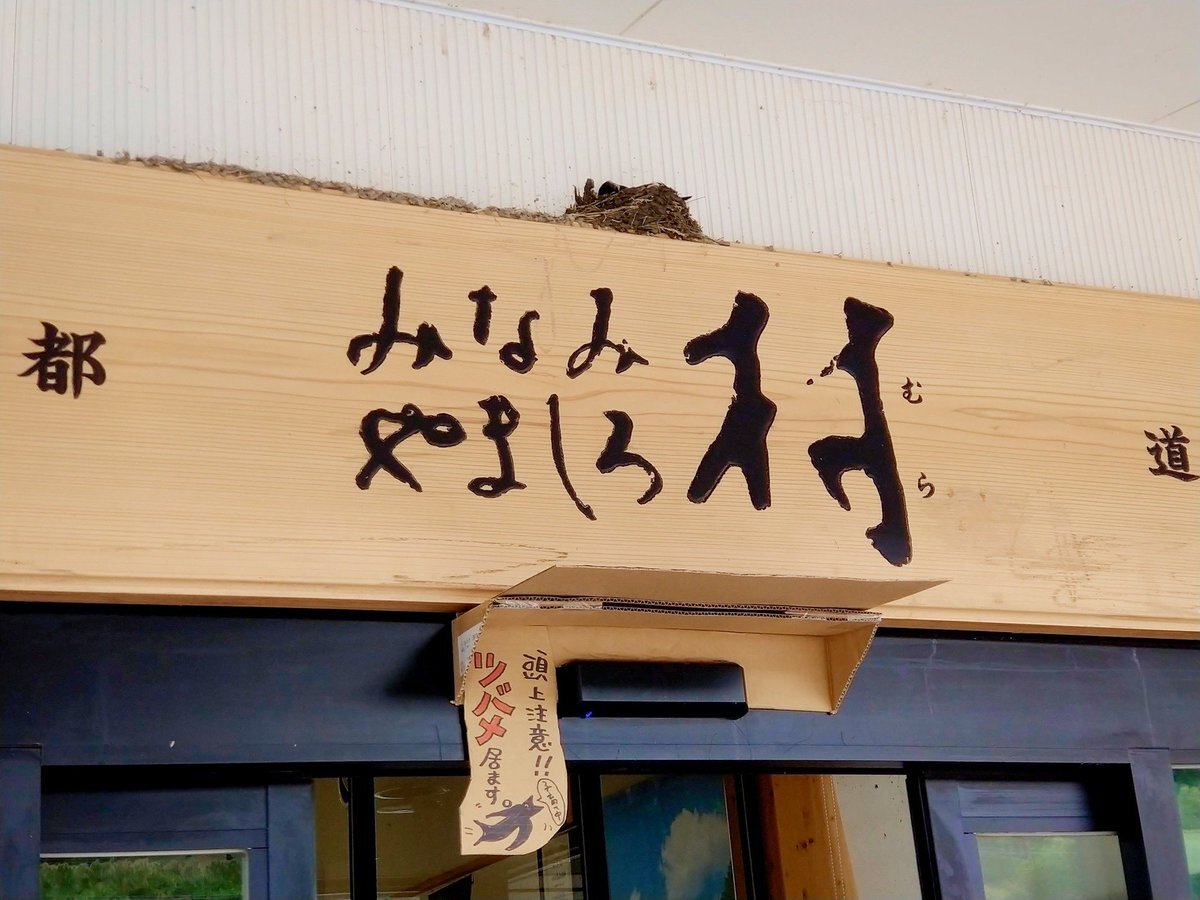 都
みなみ
やましろ
村
むら
道
頭上注意!!
ツバメ居ます。